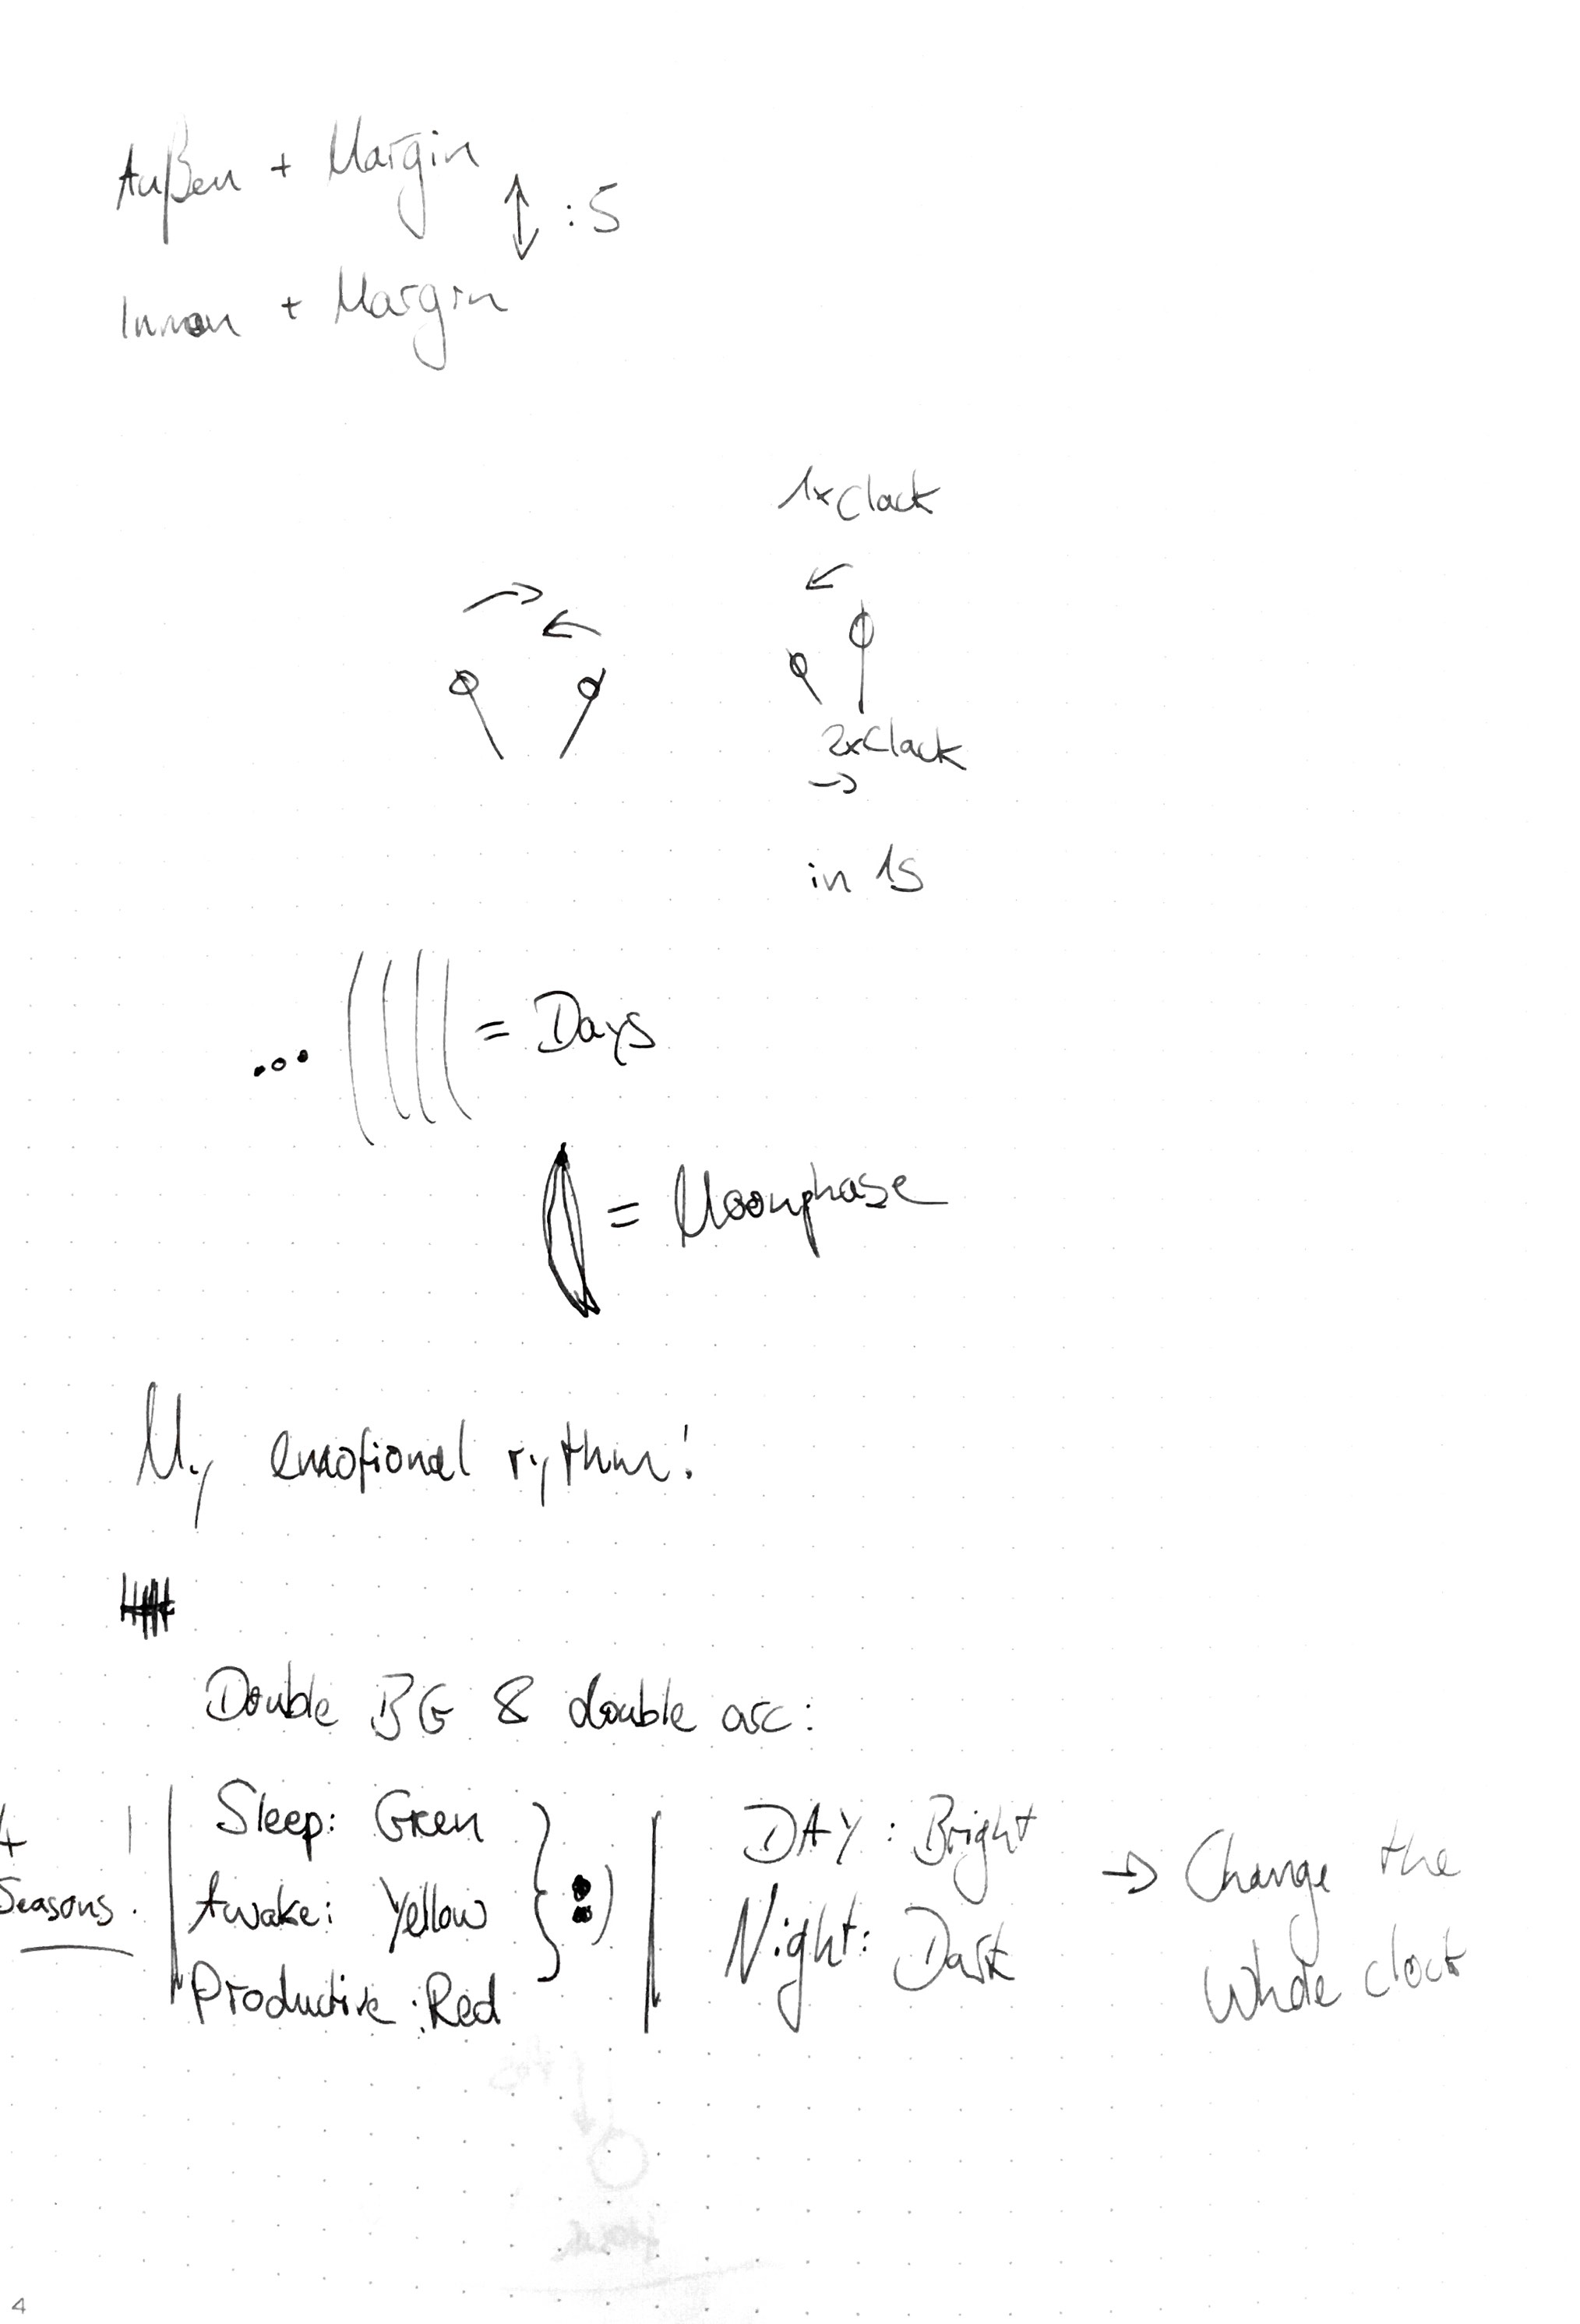 Außen + Margin
↕ :5
Innen + Margin
1x Clack
2x Clack
in 1s
... = Days
= Moonphase
My emotional rythm!
Double BG & double arc:
4 Seasons.
Sleep: Green
Awake: Yellow
Productive: Red
:)
DAY: Bright
Night: Dark
→ Change the
Whole clock
4